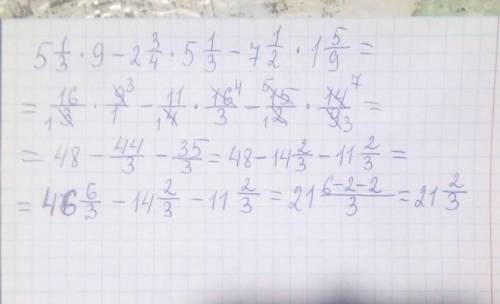 5 1/3 · 9 − 2 3/4 · 5 1/3 − 7 1/2 · 1 5/9 =
= 16/3 1 · 9 3/1 − 11/4 1 · 16 4/3 − 15 5/2 1 · 14 7/9 3 =
= 48 − 44/3 − 35/3 = 48 − 14 2/3 − 11 2/3 =
= 46 6/3 − 14 2/3 − 11 2/3 = 21 (6−2−2)/3 = 21 2/3